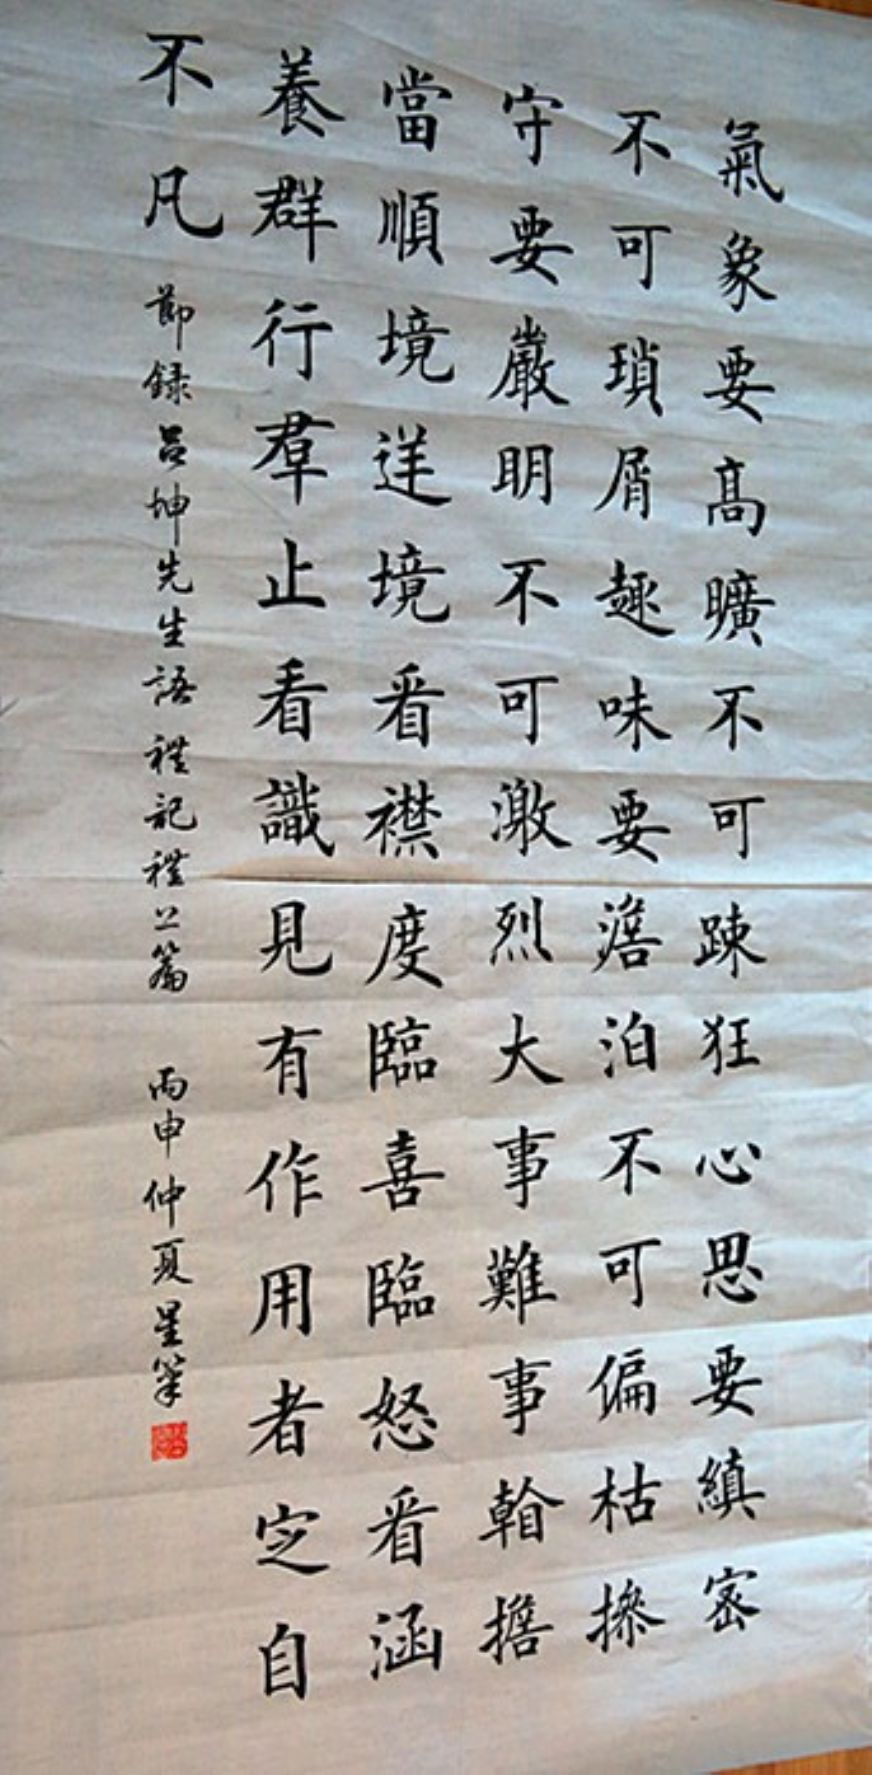 氣象要髙曠不可踈狂心思要縝密
不可瑣屑趣味要澹泊不可偏枯操
守要嚴明不可激烈大事難事看擔
當順境逆境看襟度臨喜臨怒看涵
養群行羣止看識見有作用者定自
不凡 節録呂坤先生語 禮記禮上篇 丙申仲夏星筆